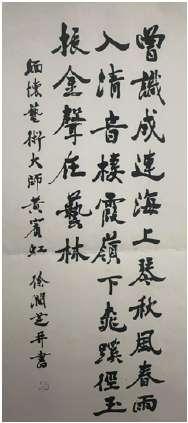 曾識成連海上琴秋風春雨
入清音棲霞嶺下桃蹊徑玉
振金聲在藝林
緬懷藝術大師黃賓虹 徐潤芝并書